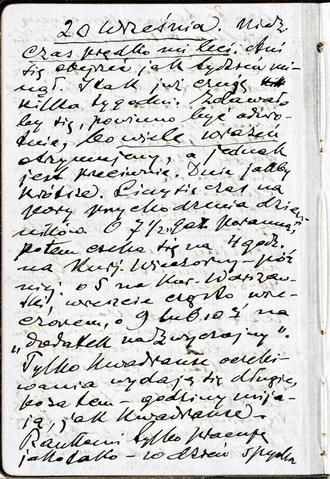 20 września. Niedz.
Czas prędko mi leci. Ani
się obejrzę jak tydzień mi-
nął. I tak już czuję
kilka tygodni. Zdawało
by się, powinno być odwro-
tnie, bo wiele wrażeń
otrzymujemy, a jednak
jest przeciwnie. Dnie jakby
krótsze. Liczy się czas na
pory przychodzenia dzien-
ników. O 7 1/2 rano,
potem czeka się na 4 godz.
na Kurj. Wieczorny – póź
niej o 5 na Kur. Warszaw-
ski, wreszcie często wie-
czorem, o 9 lub 10ej na
„dodatek nadzwyczajny".
Tylko kwadranse oczeki-
wania wydają się długie,
poza tem – godziny mija-
ją, jak kwadranse.
Rankami tylko pracuję
jako tako – w dzień